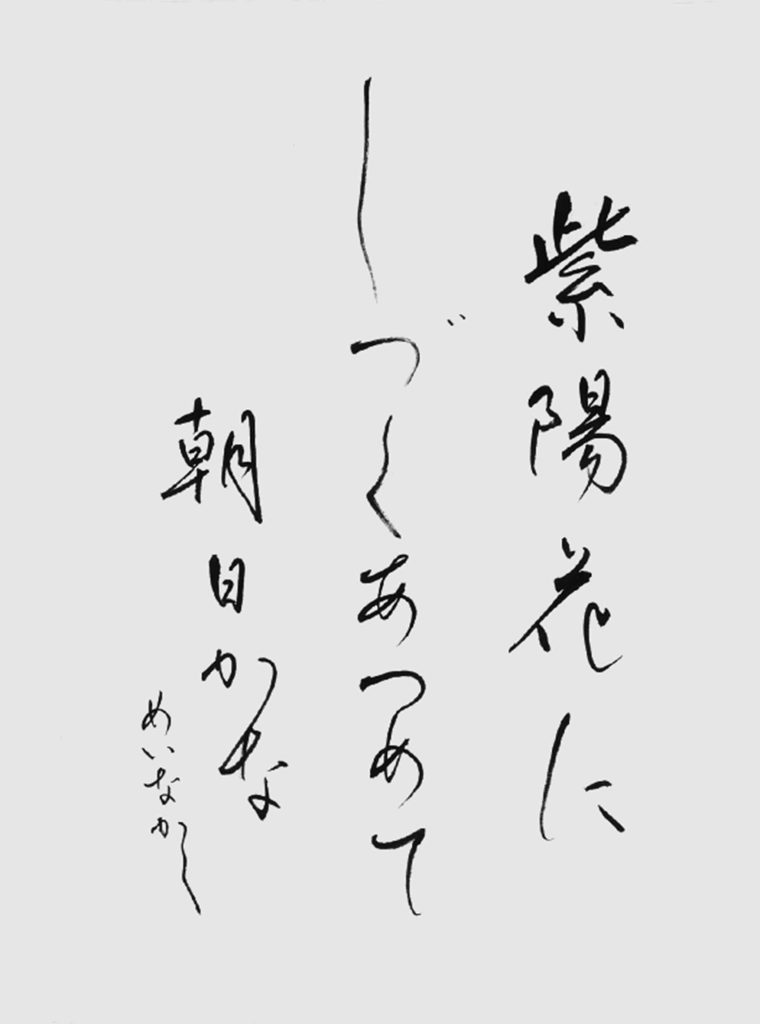 紫陽花に
しづくあつめて
朝日かな
めいなかし